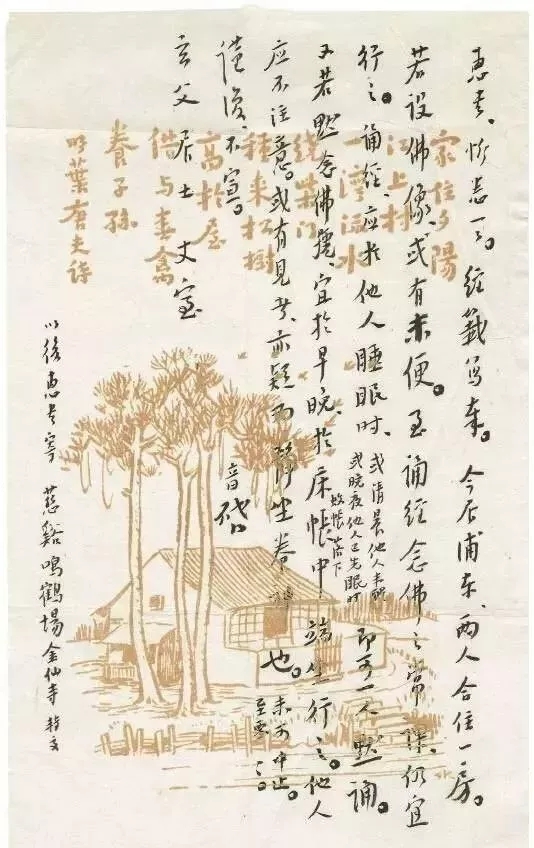 惠書、欣悉一一。經籤寫奉。今居浦東、兩人合住一房。
若設佛像、或有未便。至誦經念佛之常課、仍宜
行之。誦經、應於他人睡眠時、或清晨他人未醒 或晚夜他人已先眠時 放帳落下 即可一人默誦。
又若默念佛號、宜於早晚、於床帳中端坐行之。他人
應不注意。或有見者、亦疑為靜坐養神也。未可中止。至要
謹復、不宣。 音啓
玄父居士丈室
以後惠書寄慈谿鳴鶴場金仙寺轉交
家住夕陽
江上村
一灣流水
繞柴門
種來松樹
高於屋
借与春禽
養子孫
明葉唐夫詩